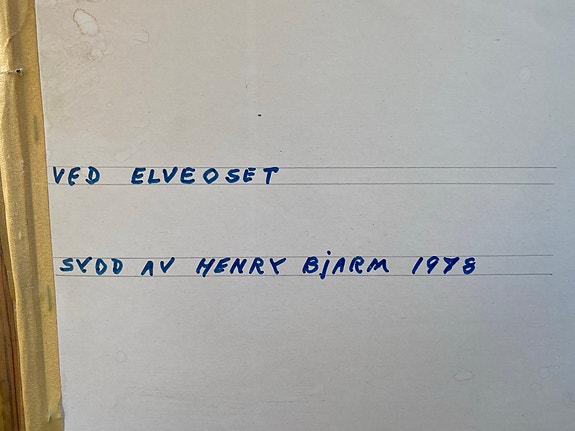 VED ELVEOSET
SYDD AV HENRY BjARM 1978